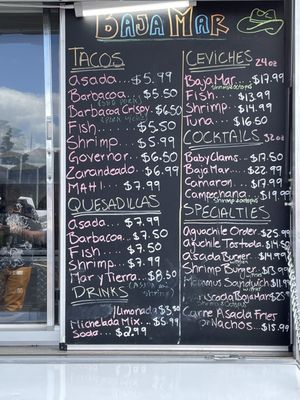 BAJA MAR
TACOS
asada...$5.99
Barbacoa...$5.50
Barbacoa Crispy.$6.50
Fish.....$5.50
Shrimp...$5.99
Governor..$6.50
Zarandeado..$6.99
MAHI...$7.99
QUESADILLAS
Asada...$7.99
Barbacoa..$7.50
Fish....$7.50
Shrimp...$7.99
Mar y Tierra..$8.50
DRINKS
limonada $3.50
Michelada Mix..$5.99
Soda...$2.99
CEVICHES 24oz
Baja Mar...$17.99
Fish...$13.99
Shrimp..$14.99
Tuna...$16.50
COCKTAILS 32oz
Baby Clams..$17.50
Baja Mar...$22.99
Camaron...$17.99
Campechana..$19.99
SPECIALTIES
Aguachile Order $25.99
Aguachile Tostada $14.50
asada Burger $14.99
Shrimp Burger $13.99
Sandwich $11.99
Baja Mar $25
Carne Asada Fries
or Nachos...$15.99